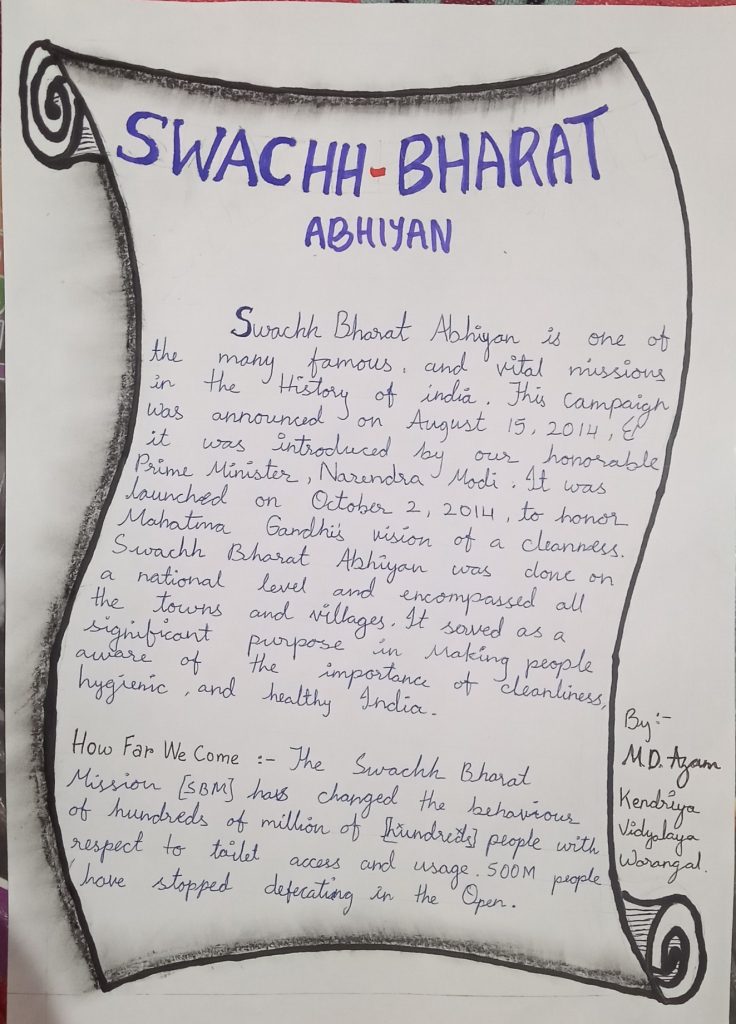 SWACHH-BHARAT
ABHIYAN
Swachh Bharat Abhiyan is one of
the many famous, and vital missions
in the History of india. This campaign
was announced on August 15, 2014, &
it was introduced by our honorable
Prime Minister, Narendra Modi. It was
launched on October 2, 2014, to honor
Mahatma Gandhi's vision of a cleanness.
Swachh Bharat Abhiyan was done on
a national level and encompassed all
the towns and villages. It served as a
significant purpose in Making people
aware of the importance of cleanliness,
hygienic, and healthy India.
How Far We Come :- The Swachh Bharat
Mission [SBM] has changed the behaviour
of hundreds of million of [hundreds] people with
respect to tailet access and usage. 500M people
have stopped defecating in the Open.
By:-
M.D. Azam
Kendriya
Vidyalaya
Warangal.